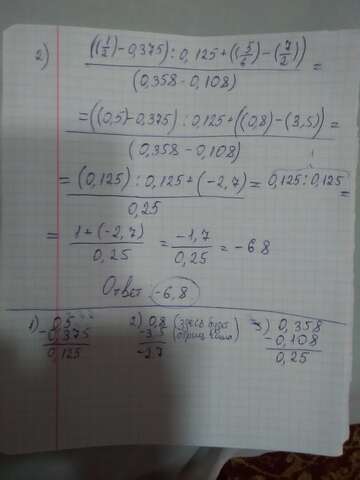 2) ((1/2)-0,375):0,125+((5/6)-(7/2)) / (0,358-0,108) =
= ((0,5)-0,375):0,125+((0,8)-(3,5)) / (0,358-0,108) =
= (0,125):0,125+(-2,7) / 0,25 = 0,125:0,125 =
= 1+(-2,7) / 0,25 = -1,7 / 0,25 = -6.8
Ответ -6,8
1) 0,5 - 0,375 = 0,125
2) 0,8 - 3,5 = -2,7 (здесь будет отриц число)
3) 0,358 - 0,108 = 0,25